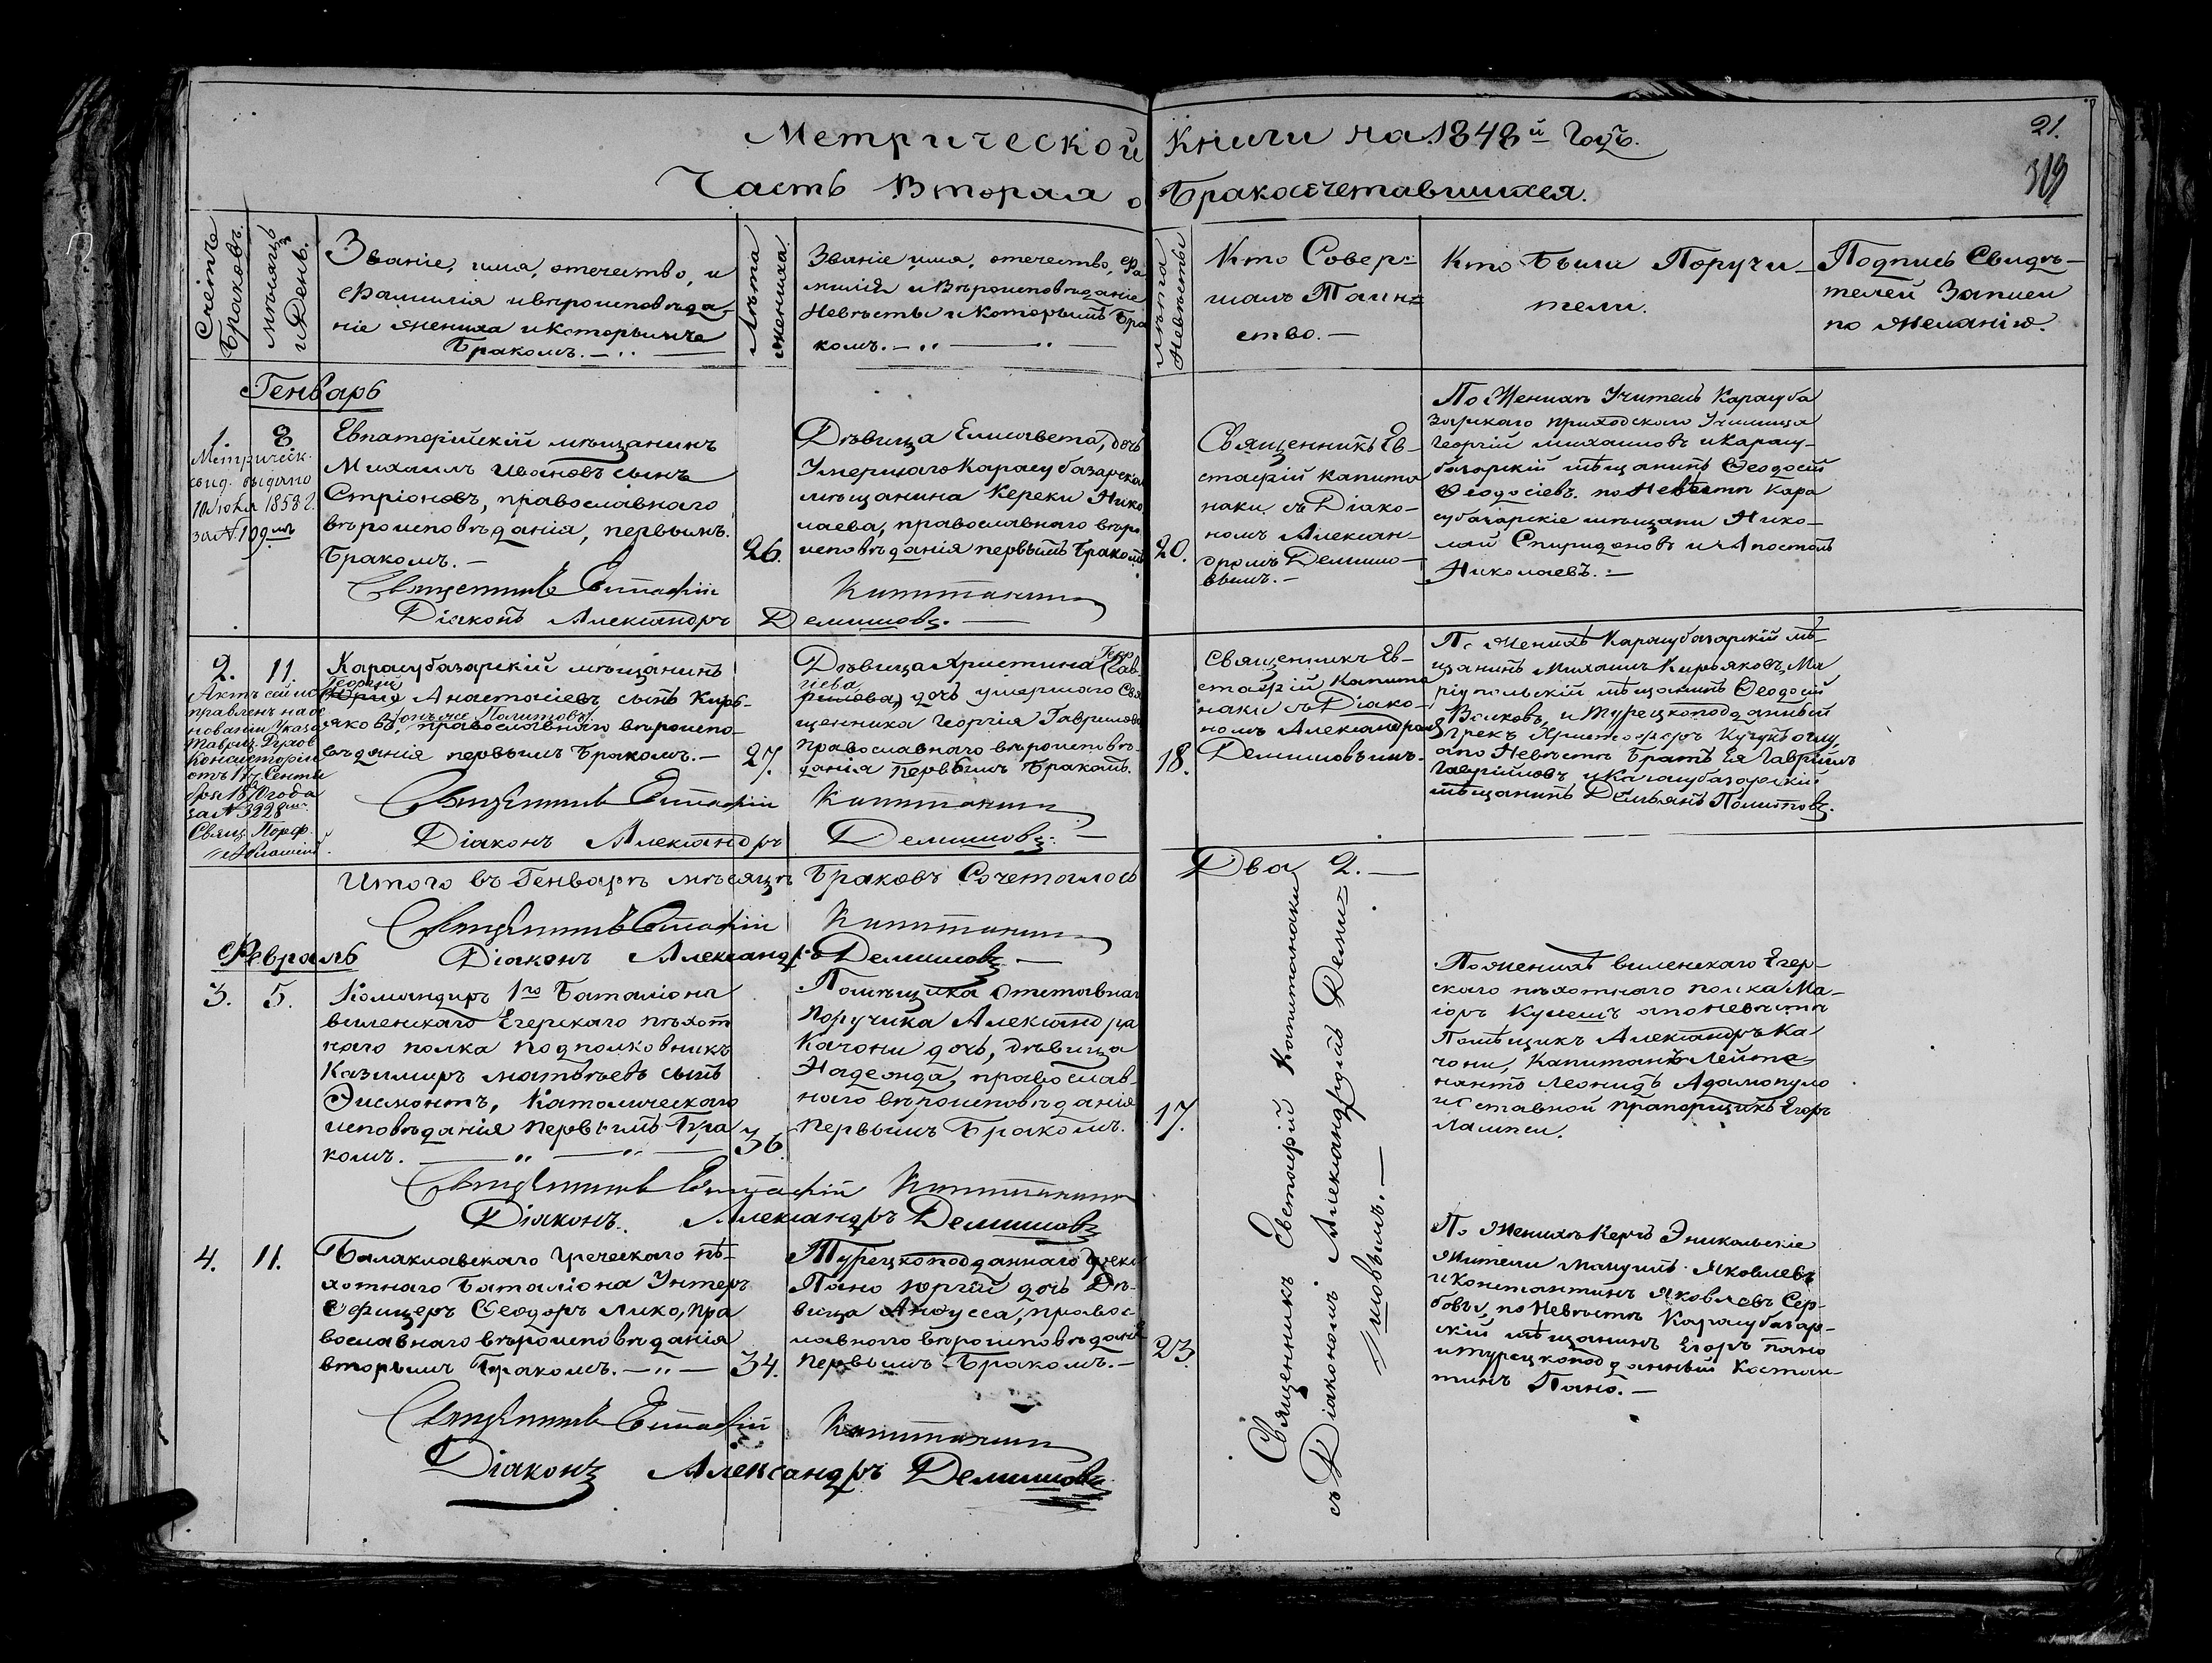 Метрической Книги на 1848й Годъ.
21.
Часть Вторая о Бракосочетавшихся.
Счетъ Браковъ.
Мѣсяцъ и День.
Званіе, имя, отечество, и
Фамилія и вѣроисповѣда-
ніе жениха и которымъ
Бракомъ.
Лѣта жениха.
Званіе имя, отечество, Фа
милія и Вѣроисповѣданіе
Невѣсты и которымъ Бра
комъ.
Лѣта Невѣсты
Кто Совер-
шалъ Таин-
ство.
Кто Были Поручи-
тели.
Подпись Свидѣ-
телей Записи
по желанію.
Генварь
1. 8
Метрическ.
свид. выдано
10 Июля 1858 г.
за № 109мъ
Евпаторійскій мѣщанинъ
Михаилъ Ивановъ сынъ
Стріоновъ, православнаго
вѣроисповѣданія, первымъ
Бракомъ.
26.
Дѣвица Елисавета, дочь
Умершаго Карасубазарска
мѣщанина Кереки Нико
лаева, православнаго вѣро
исповѣданія первымъ Бракомъ
20.
Священникъ Ев-
стафій Капита
наки съ Діако-
номъ Алексан-
дромъ Демишо-
вымъ.
По Женихѣ Учитель Карасуба
зарскаго приходскаго Училища
Георгій Михаиловъ и Карасу-
базарскій мѣщанинъ Ѳеодосій
Ѳеодосіевъ. по Невѣстѣ Кара
субазарскіе мѣщани Нико-
лай Спиридоновъ и Апостолъ
Николаевъ.
Священникъ Евстафій Капитанаки
Діаконъ Александръ Демишовъ.
2. 11.
Актъ сей ис
правленъ на ос
нованіи Указа
Таврич. Духов
Консисторіи
отъ 17 Сентя
бря 1870 года
за № 3228мъ
Свящ. Порф.
Карасубазарскій мѣщанинъ
Георгій
Анастасіевъ сынъ Кирь-
онъ же Политовъ
яковъ, православнаго вѣроиспо-
вѣданія первымъ Бракомъ.
27.
Дѣвица Христина Геор
гіева
дочь умершаго Свя
щенника Георгія Гаврилова
православнаго вѣроисповѣ-
данія первымъ Бракомъ.
18.
Священникъ Ев-
стафій Капита
наки съ Діако-
номъ Александромъ
Демишовымъ.
По Женихѣ Карасубазарскій мѣ-
щанинъ Михаилъ Кирьяковъ, Ма
ріупольскій мѣщанинъ Ѳеодосій
Волковъ, и Турецкоподданный
Грекъ Христофоръ Кучукъ оглу
а по Невѣстѣ Братъ Ея Гавріилъ
Гавріиловъ и Карасубазарскій
мѣщанинъ Демьянъ Политовъ.
Священникъ Евстафій Капитанаки
Діаконъ Александръ Демишовъ.
Итого въ Генварѣ мѣсяцѣ Браковъ Сочеталось Два 2.
Священникъ Евстафій Капитанаки
Діаконъ Александръ Демишовъ
Февраль
3. 5.
Командиръ 1го Баталіона
виленскаго Егерскаго пѣхот
наго полка подполковникъ
Казимиръ матвѣевъ сынъ
Эйсмонтъ, Католическаго
исповѣданія первымъ Бра
комъ.
36.
Помѣщика Отставнаго
поручика Александра
Качони дочь, дѣвица
Надежда, православ-
наго вѣроисповѣданія
первымъ Бракомъ.
17.
По женихѣ виленскаго Егер-
скаго пѣхотнаго полка Ма-
іоръ Кулешъ а по невѣстѣ
Помѣщикъ Александръ Ка-
чони, Капитанъ Лейте-
нантъ Леонидъ Адамопуло
и Отставной прапорщикъ Егоръ
Лампси.
Священникъ Евстафій Капитанаки
Діаконъ. Александръ Демишовъ
4. 11.
Балаклавскаго Греческаго пѣ-
хотнаго Баталіона Унтеръ
Офицеръ Ѳеодоръ Лико, пра
вославнаго вѣроисповѣданія
вторымъ Бракомъ.
34.
Турецкоподданнаго Грека
Пано Юргій дочь Дѣ-
вица Анфусса, правос-
лавнаго вѣроисповѣданія
первымъ Бракомъ.
23.
По Женихѣ Керчь Эникольскіе
Жители Мануилъ Яковлевъ
и Константинъ Яковлевъ Сер-
бовы, по Невѣстѣ Карасубазар-
скій мѣщанинъ Егоръ Пано
и турецкоподданный Костан-
тинъ Пано.
Священникъ Евстафій Капитанаки
съ Діакономъ Александромъ Деми-
шовымъ.
Священникъ Евстафій Капитанаки
Діаконъ Александръ Демишовъ